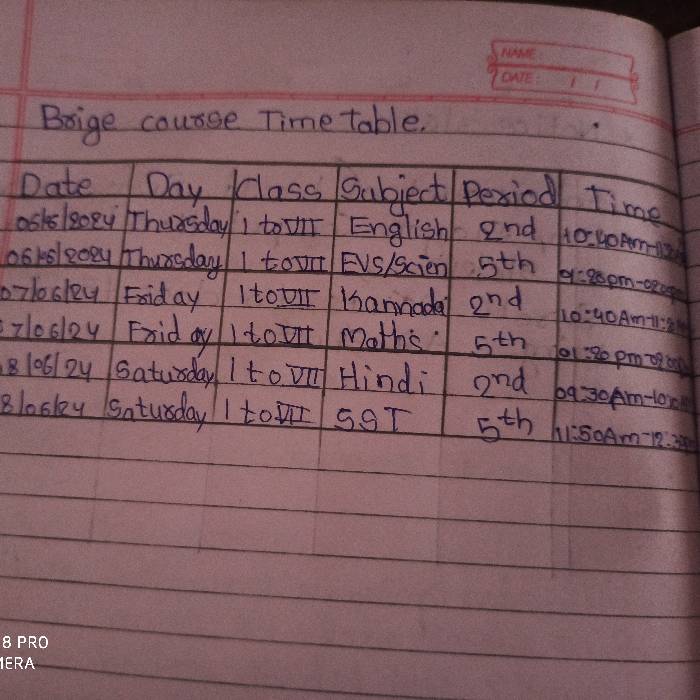 NAME:
DATE: / /
Brige course Time table.
Date Day Class Subject Period Time
Thursday 1 to VII English 2nd 10:40Am-
Thursday 1 to VII EVS/Scien 5th
07/06/24 Friday 1 to VII Kannada 2nd 10:40Am-11:
7/06/24 Friday 1 to VII Maths 5th 01:20pm-
8/06/24 Saturday 1 to VII Hindi 2nd 09:30Am-10:
8/06/24 Saturday 1 to VII SST 5th 11:50Am-12:
8 PRO
MERA